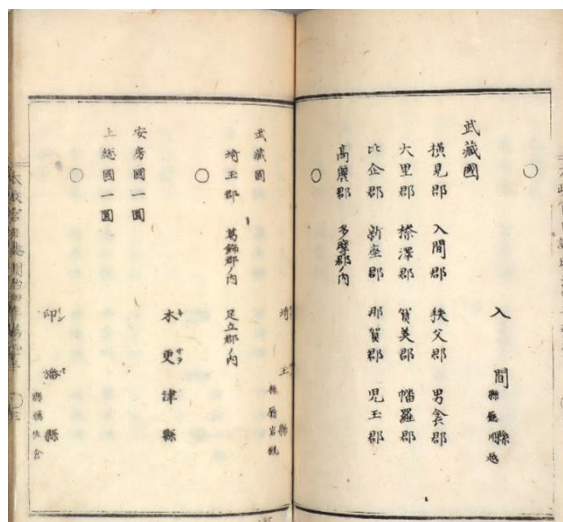 ○
入間縣 縣廳川越
武藏國
横見郡 入間郡 秩父郡 男衾郡
大里郡 榛澤郡 賀美郡 幡羅郡
比企郡 新座郡 那賀郡 児玉郡
高麗郡 多摩郡ノ内
○
埼玉縣 縣廳岩槻
武藏國
埼玉郡 葛飾郡ノ内 足立郡ノ内
○
木更津縣
安房國一圓
上總國一圓
○
印旛縣 縣廳佐倉